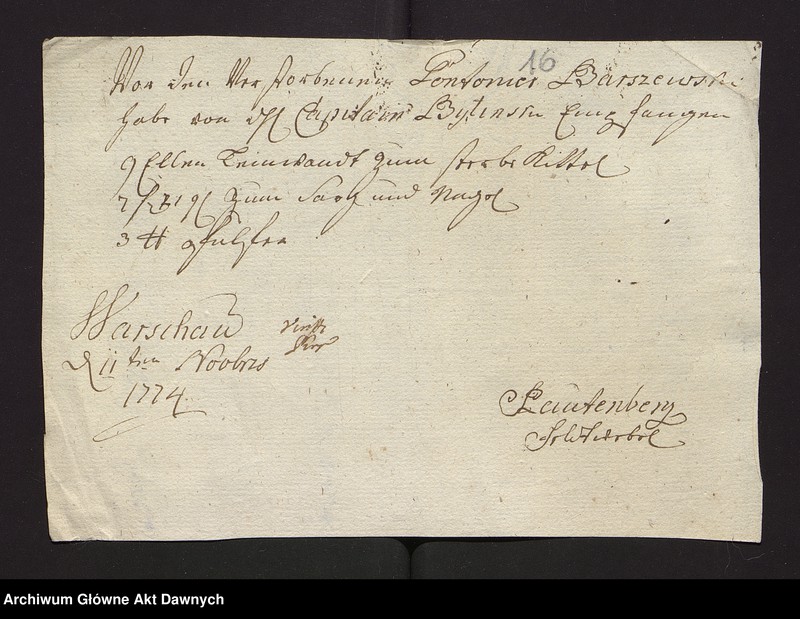 16
Vor den Verstorbenen Pontonier Barszewski
habe von dH Capitain Bylinski Empfangen
9 Ellen Leinwandt zum sterbe Kittel
zum Sarg und Nagel
3 ℔
Warschau
d 11 ten Novbris
1774
Lautenberg
Feldwebel
Archiwum Główne Akt Dawnych